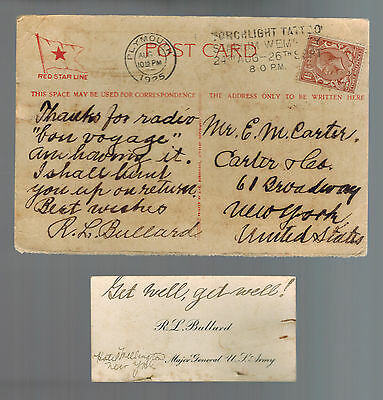 RED STAR LINE
POST CARD
PLYMOUTH
1925
TORCHLIGHT TATTOO
WEM
AUG-26TH S
8.0 P.M.
THIS SPACE MAY BE USED FOR CORRESPONDENCE
THE ADDRESS ONLY TO BE WRITTEN HERE
Thanks for radio
"bon voyage"
Am having it.
I shall hunt
you up on return.
Best wishes
R. L. Bullard
Mr. E. M. Carter.
Carter & Co.
61 Broadway
New York,
United States
Get well, get well!
R. L. Bullard
Major General U. S. Army
Hotel Wellington
New York